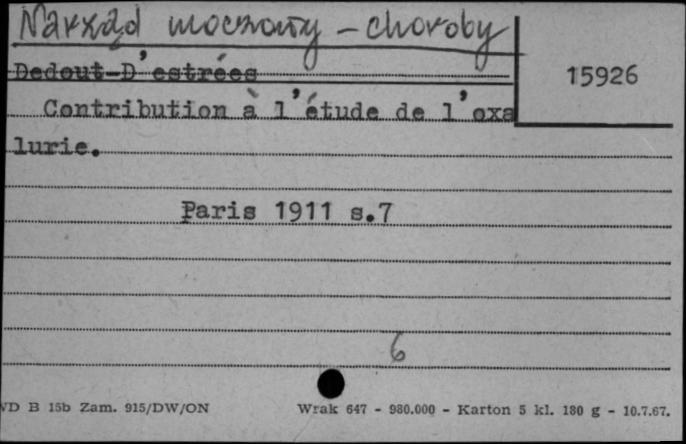 Narząd moczowy - choroby
15926
Dedout-D'estrées
Contribution à l'étude de l'oxa
lurie.
Paris 1911 s.7
6
VD B 15b Zam. 915/DW/ON Wrak 647 - 980.000 - Karton 5 kl. 180 g - 10.7.67.